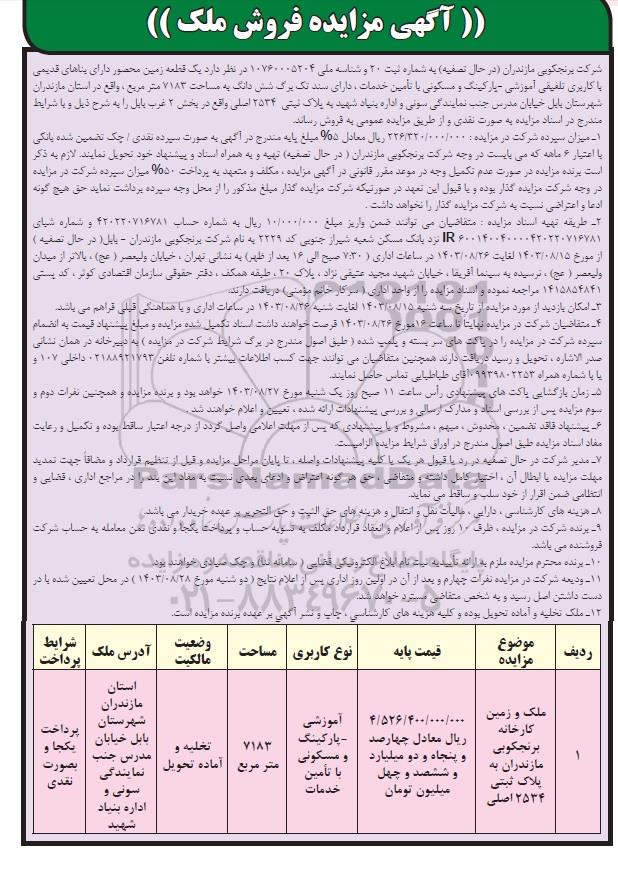 (( آگهی مزایده فروش ملک ))
شرکت برنجکوبی مازندران (در حال تصفیه) به شماره ثبت ۲۰ و شناسه ملی ۱۰۷۶۰۰۰۵۲۰۴ در نظر دارد یک قطعه زمین محصور دارای بناهای قدیمی
با کاربری تلفیقی آموزشی -پارکینگ و مسکونی با تأمین خدمات ، دارای سند تک برگ شش دانگ به مساحت ۷۱۸۳ متر مربع ، واقع در استان مازندران
شهرستان بابل خیابان مدرس جنب نمایندگی سونی و اداره بنیاد شهید به پلاک ثبتی ۲۵۳۴ اصلی واقع در بخش ۲ غرب بابل را به شرح ذیل و با شرایط
مندرج در اسناد مزایده به صورت نقدی و از طریق مزایده عمومی به فروش رساند.
۱_ میزان سپرده شرکت در مزایده : ۲۲۶/۳۲۰/۰۰۰/۰۰۰ ریال معادل ۵% مبلغ پایه مندرج در آگهی به صورت سپرده نقدی / چک تضمین شده بانکی
با اعتبار ۶ ماهه که می بایست در وجه شرکت برنجکوبی مازندران ( در حال تصفیه) تهیه و به همراه اسناد و پیشنهاد خود تحویل نمایند. لازم به ذکر
است برنده مزایده در صورت عدم تکمیل وجه در موعد مقرر قانونی در آگهی مزایده ، مکلف و متعهد به پرداخت ۵۰% میزان سپرده شرکت در مزایده
در وجه شرکت مزایده گذار بوده و با قبول این تعهد در صورتیکه شرکت مزایده گذار مبلغ مذکور را از محل وجه سپرده برداشت نماید حق هیچ گونه
ادعا و اعتراضی نسبت به شرکت مزایده گذار را نخواهد داشت .
۲_ طریقه تهیه اسناد مزایده : متقاضیان می توانند ضمن واریز مبلغ ۱۰/۰۰۰/۰۰۰ ریال به شماره حساب ۴۲۰۲۲۰۷۱۶۷۸۱ و شماره شبای
IR ۶۰۰۱۴۰۰۴۰۰۰۰۴۲۰۲۲۰۷۱۶۷۸۱ نزد بانک مسکن شعبه شیراز جنوبی کد ۲۲۲۹ به نام شرکت برنجکوبی مازندران - بابل( در حال تصفیه )
از مورخ ۱۴۰۳/۰۸/۱۵ لغایت ۱۴۰۳/۰۸/۲۶ در ساعات اداری ( ۷:۳۰ صبح الی ۱۶ بعد از ظهر) به نشانی تهران ، خیابان ولیعصر ( عج) ، بالاتر از میدان
ولیعصر (عج) ، نرسیده به سینما آفریقا ، خیابان شهید مجید عتیقی نژاد ، پلاک ۲۰ ، طبقه همکف ، دفتر حقوقی سازمان اقتصادی کوثر ، کد پستی
۱۴۱۵۸۵۴۸۴۱ مراجعه نموده و اسناد مزایده را از واحد اداری ( سرکار خانم مؤمنی) دریافت دارند.
۳_ امکان بازدید از مورد مزایده از تاریخ سه شنبه ۱۴۰۳/۰۸/۱۵ لغایت شنبه ۱۴۰۳/۰۸/۲۶ در ساعات اداری و با هماهنگی قبلی فراهم می باشد.
۴_ متقاضیان شرکت در مزایده نهایتا تا ساعت ۱۶مورخ ۱۴۰۳/۰۸/۲۶ فرصت خواهند داشت اسناد تکمیل شده مزایده و مبلغ پیشنهاد قیمت به انضمام
سپرده شرکت در مزایده را در پاکت های سر بسته و پلمپ شده ( طبق اصول مندرج در برگ شرایط شرکت در مزایده ) به دبیرخانه در همان نشانی
صدر الاشاره ، تحویل و رسید دریافت دارند همچنین متقاضیان می توانند جهت کسب اطلاعات بیشتر با شماره تلفن ۰۲۱۸۸۹۲۱۷۹۳ داخلی ۱۰۷ و
یا با شماره همراه ۰۹۹۳۹۸۰۲۲۵۳ آقای طباطبایی تماس حاصل نمایند.
۵_ زمان بازگشایی پاکت های پیشنهادی رأس ساعت ۱۱ صبح روز یک شنبه مورخ ۱۴۰۳/۰۸/۲۷ خواهد بود و برنده مزایده و همچنین نفرات دوم و
سوم مزایده پس از بررسی اسناد و مدارک ارسالی و بررسی پیشنهادات ارائه شده ، تعیین و اعلام خواهند شد .
۶_ پیشنهاد فاقد تضمین ، مخدوش ، مبهم ، مشروط و یا پیشنهادی که پس از مهلت اعلامی واصل گردد از درجه اعتبار ساقط بوده و تکمیل و رعایت
مفاد اسناد مزایده طبق اصول مندرج در اوراق شرایط مزایده الزامیست.
۷_ مدیر شرکت در حال تصفیه در رد یا قبول هر یک یا کلیه پیشنهادات واصله ، تا پایان مراحل مزایده و قبل از تنظیم قرارداد و مضافاً جهت تمدید
مهلت مزایده یا ابطال آن ، اختیار کامل داشته و متقاضی ، حق هر گونه اعتراض و ادعای بعدی نسبت به مفاد این بند را در مراجع اداری ، قضایی و
انتظامی ضمن اقرار از خود سلب و ساقط می نماید.
۸_ هزینه های کارشناسی ، دارایی ، مالیات نقل و انتقال و هزینه های حق الثبت و حق التحریر بر عهده خریدار می باشد.
۹_ برنده شرکت در مزایده ، ظرف ۱۰ روز پس از اعلام و انعقاد قرارداد مکلف به تسویه حساب و پرداخت یکجا و نقدی ثمن معامله به حساب شرکت
فروشنده می باشد.
۱۰_ برنده محترم مزایده ملزم به ارائه تأییدیه ثبت نام ابلاغ الکترونیکی قضایی ( سامانه ثنا) و چک صیادی خواهند بود.
۱۱_ ودیعه شرکت در مزایده نفرات چهارم و بعد از آن در اولین روز اداری پس از اعلام نتایج ( دو شنبه مورخ ۱۴۰۳/۰۸/۲۸ ) در محل تعیین شده با در
دست داشتن اصل رسید و به شخص متقاضی مسترد خواهد شد.
۱۲_ ملک تخلیه و آماده تحویل بوده و کلیه هزینه های کارشناسی ، چاپ و نشر آگهی بر عهده برنده مزایده است.
ردیف
موضوع
مزایده
قیمت پایه
نوع کاربری
مساحت
وضعیت
مالکیت
آدرس ملک
شرایط
پرداخت
۱
ملک و زمین
کارخانه
برنجکوبی
مازندران به
پلاک ثبتی
۲۵۳۴ اصلی
۴/۵۲۶/۴۰۰/۰۰۰/۰۰۰
ریال معادل چهارصد
و پنجاه و دو میلیارد
و ششصد و چهل
میلیون تومان
آموزشی
-پارکینگ
و مسکونی
با تأمین
خدمات
۷۱۸۳
متر مربع
تخلیه و
آماده تحویل
استان
مازندران
شهرستان
بابل خیابان
مدرس جنب
نمایندگی
سونی و
اداره بنیاد
شهید
پرداخت
یکجا و
بصورت
نقدی
ParsNamadData
پایگاه اطلاع رسانی مناقصه و مزایده
۰۲۱-۸۸۳۴۹۶۷۰-۵